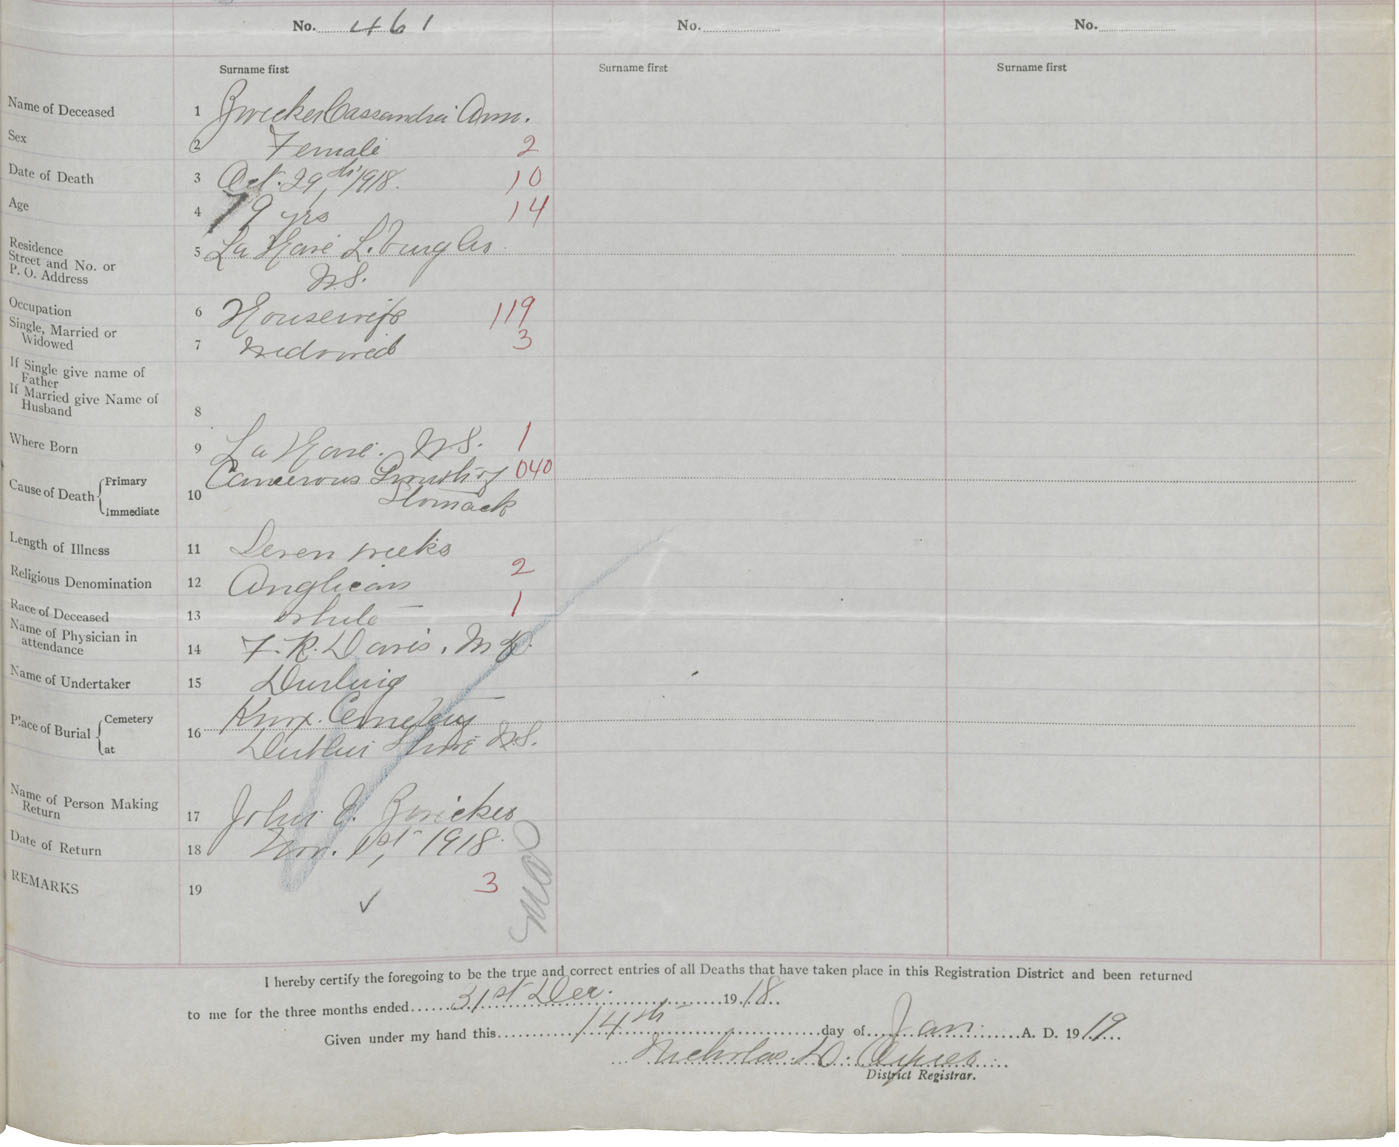 No. 461 No. No.
Surname first Surname first Surname first
Name of Deceased 1 Zwicker Cassandria Ann.
Sex 2 Female 2
Date of Death 3 Oct. 29th, 1918. 10
Age 4 79 yrs 14
Residence
Street and No. or
P. O. Address
5 La Have L.burg Co.
N.S.
Occupation 6 Housewife 119
Single, Married or
Widowed
7 Widowed 3
If Single give name of
Father
If Married give Name of
Husband
8
Where Born 9 La Have. N.S. 1
Cause of Death Primary Cancerous Growth of 040
Immediate 10 Stomack
Length of Illness 11 Seven weeks
Religious Denomination 12 Anglican 2
Race of Deceased 13 White 1
Name of Physician in
attendance
14 F. R. Davis. M.D.
Name of Undertaker 15
Place of Burial Cemetery Knox. Cemetery
at 16 Dublin Shore N.S.
Name of Person Making
Return
17 John Zwicker
Date of Return 18 Nov. 1st, 1918.
REMARKS 19 3
✓
I hereby certify the foregoing to be the true and correct entries of all Deaths that have taken place in this Registration District and been returned
to me for the three months ended 31st Dec. 1918
Given under my hand this 14th day of Jan. A. D. 1919
Nicholas D.
District Registrar.